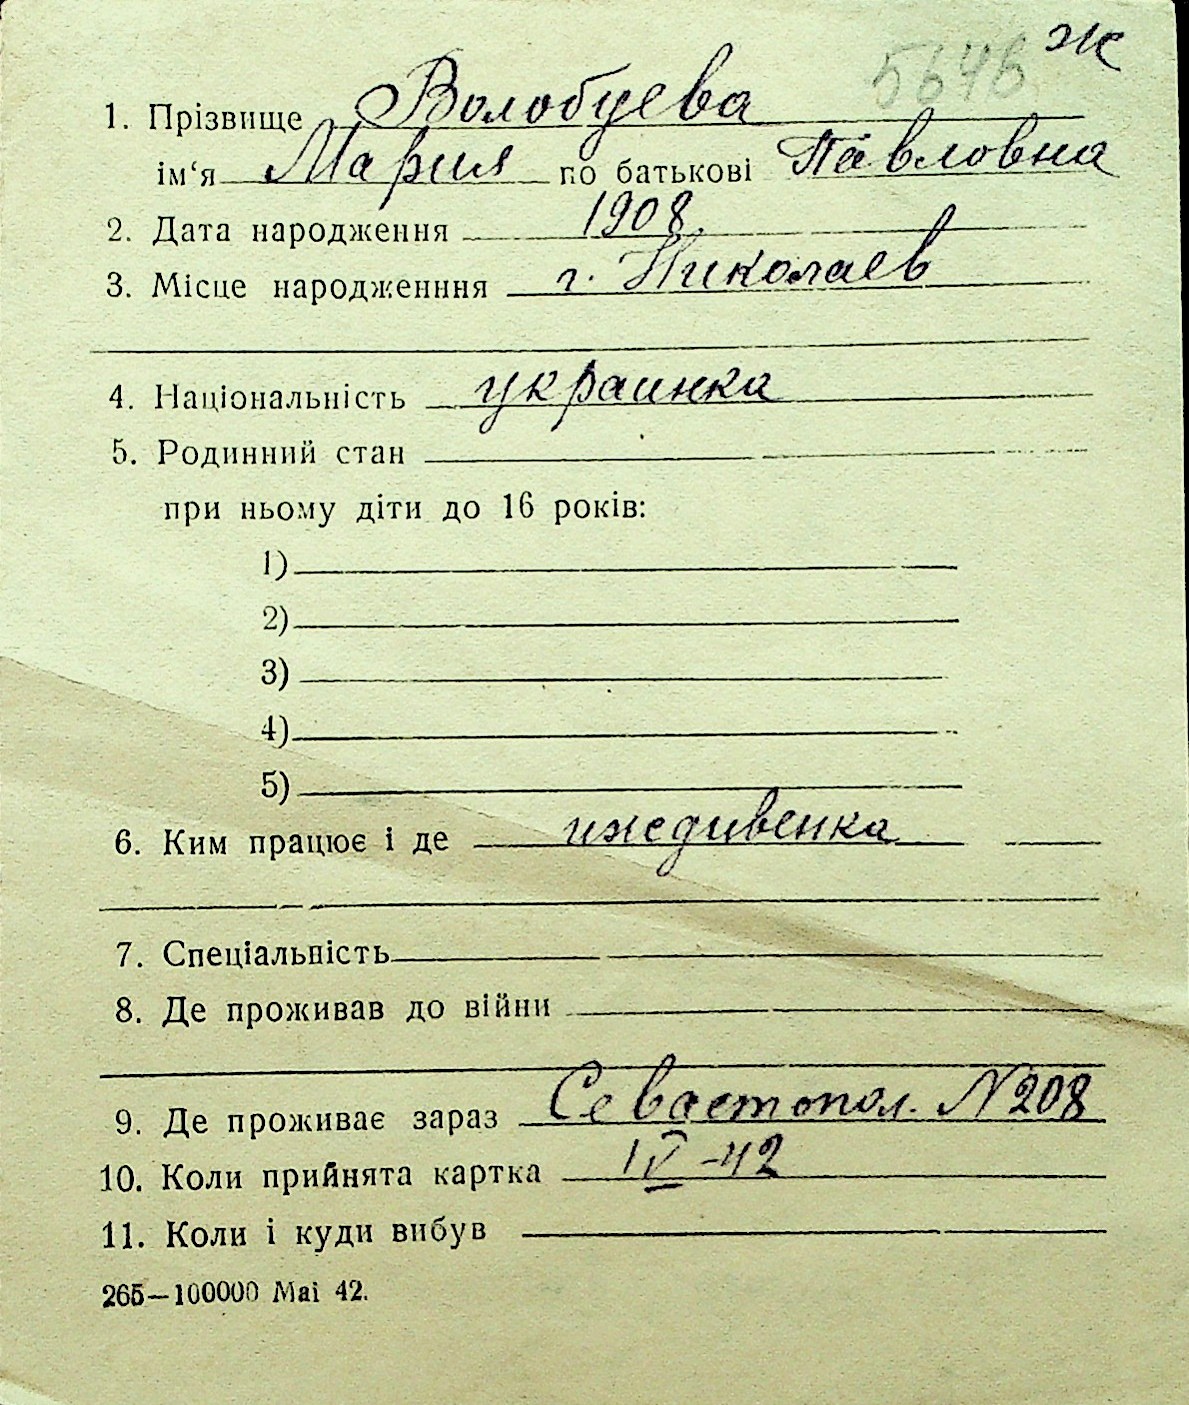 5646 ж
1. Прізвище Волобуева
ім‘я Мария по батькові Павловна
2. Дата народження 1908
3. Місце народженння г. Николаев
4. Національність украинка
5. Родинний стан
при ньому діти до 16 років:
1)
2)
3)
4)
5)
6. Ким працює і де иждивенка
7. Спеціальність
8. Де проживав до війни
9. Де проживає зараз Севастопол. N 208
10. Коли прийнята картка IV-42
11. Коли і куди вибув
265—100000 Mai 42.